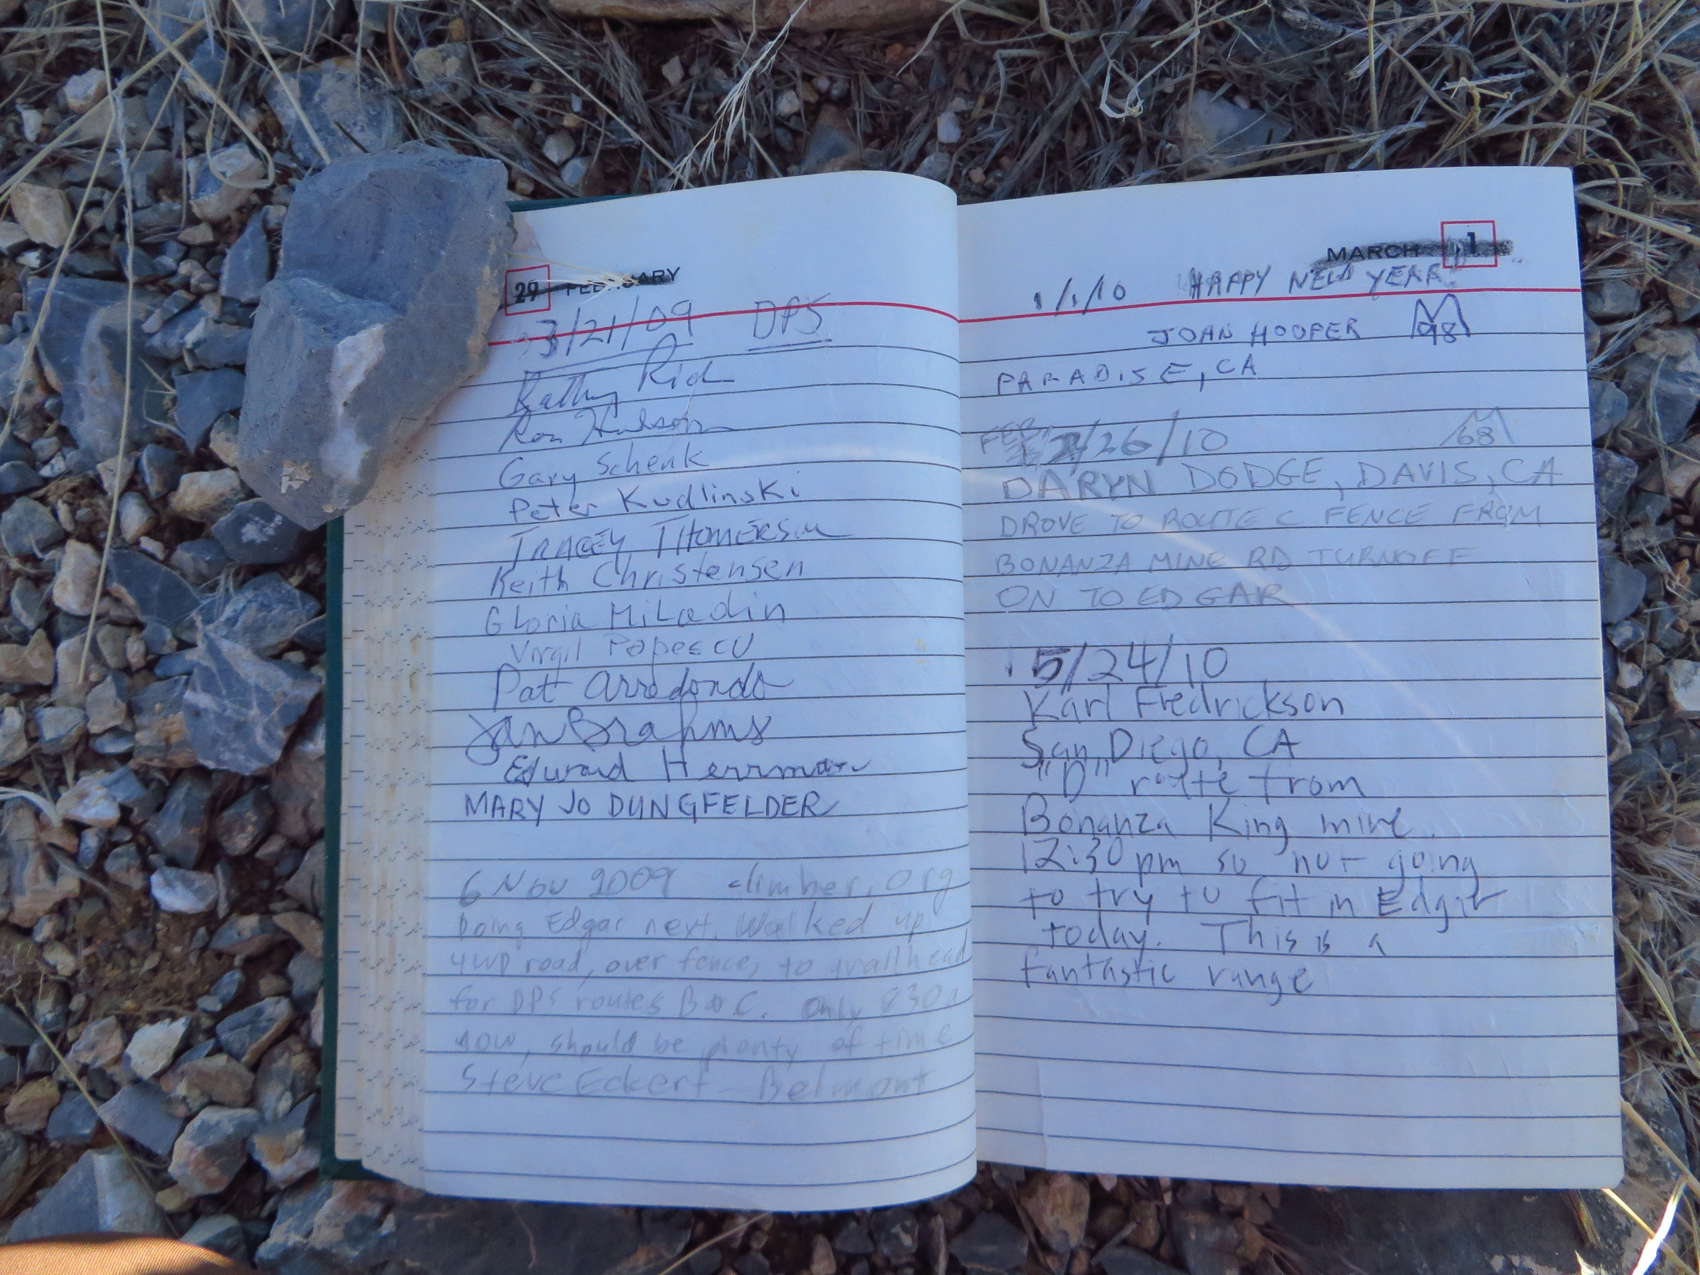 29 FEBRUARY
3/21/09 DPS
Kathy Rich
Ron Hudson
Gary Schenk
Peter Kudlinski
TRACEY THOMERSON
Keith Christensen
Gloria Miladin
Virgil Popescu
Pat Arredondo
Jan Brahms
Edward Herrman
MARY JO DUNGFELDER
6 Nov 2009 climber.org
Doing Edgar next. Walked up
4WD road, over fence, to trailhead
for DPS routes B & C. Only 830a
now, should be plenty of time
Steve Eckert - Belmont
MARCH 1
1/1/10 HAPPY NEW YEAR!
JOAN HOOPER 98
PARADISE, CA
FEB. 2/26/10 68
DARYN DODGE, DAVIS, CA
DROVE TO ROUTE C FENCE FROM
BONANZA MINE RD TURNOFF
ON TO EDGAR
5/24/10
Karl Fredrickson
San Diego, CA
"D" route from
Bonanza King mine.
12:30pm so not going
to try to fit in Edgar
today. This is a
fantastic range